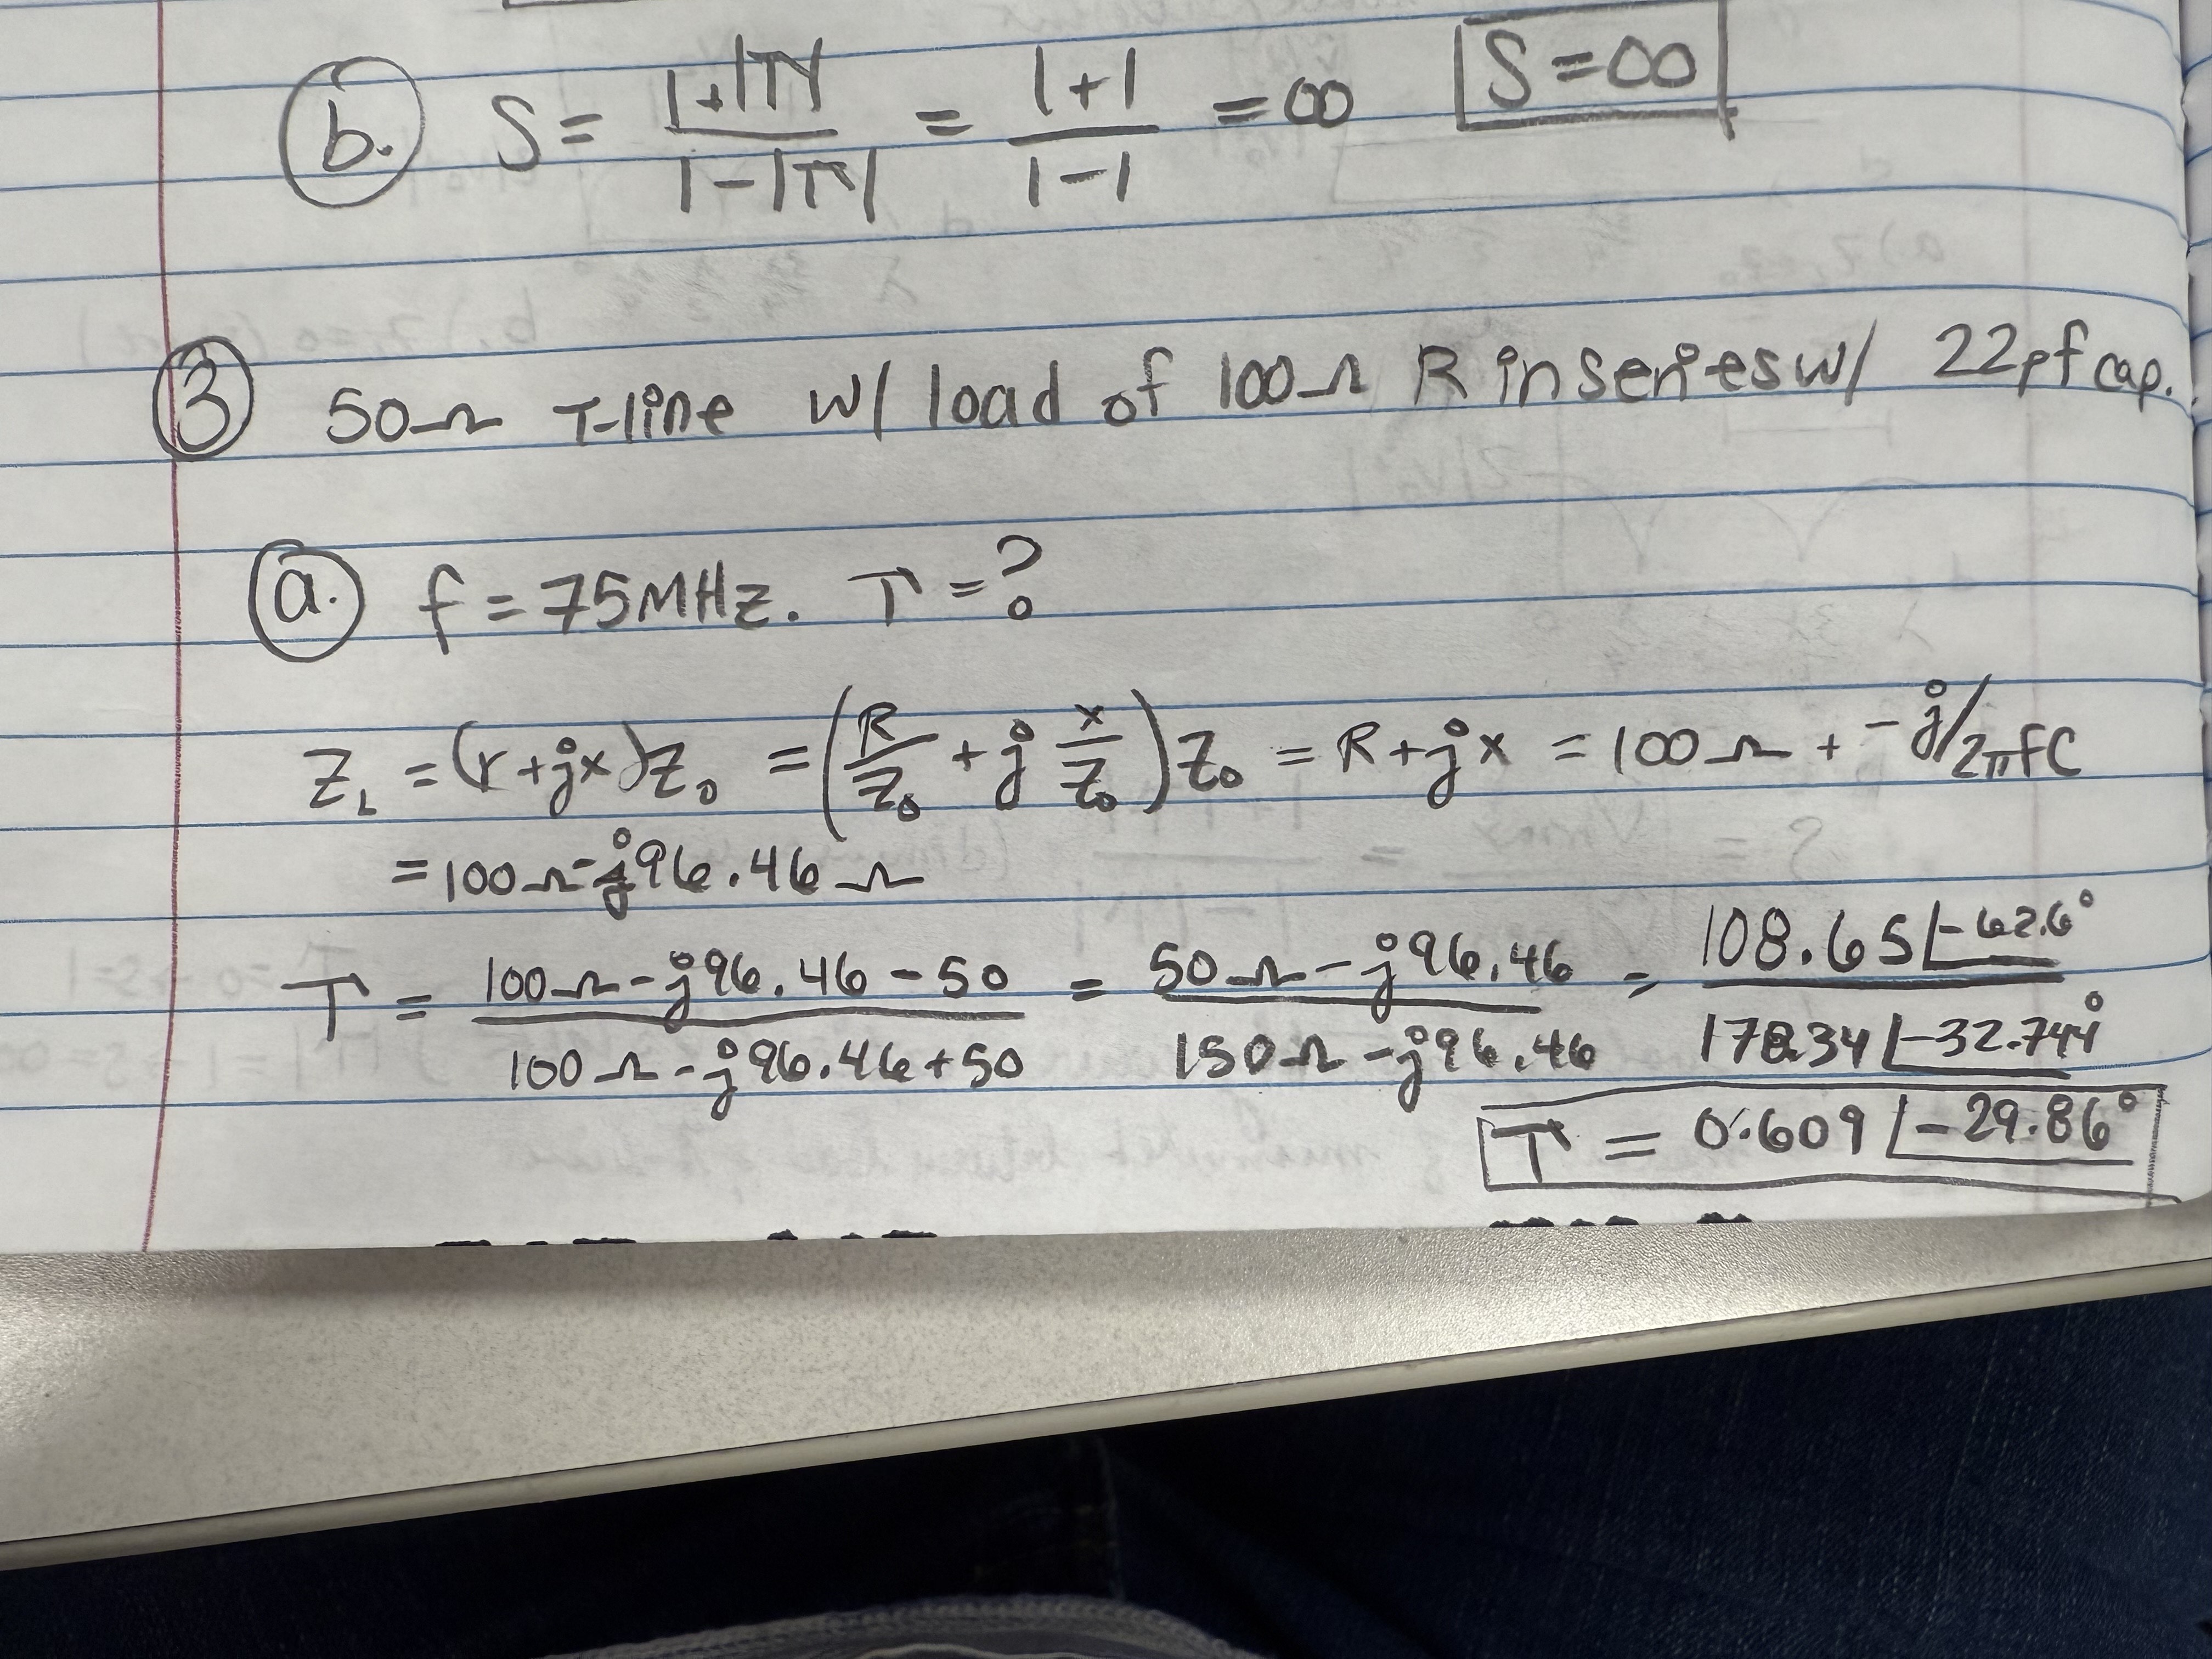 b. S = 1+|Γ| / 1-|Γ| = 1+1 / 1-1 = ∞ S=∞
3 50Ω T-line w/ load of 100Ω R in series w/ 22pf cap.
a. f = 75MHz. Γ = ?
Z_L = (r+jx)Z_0 = (R/Z_0 + j X/Z_0)Z_0 = R+jX = 100Ω + -j/2πfC
= 100Ω - j96.46Ω
Γ = 100Ω - j96.46 - 50 / 100Ω - j96.46+50 = 50Ω - j96.46 / 150Ω - j96.46 = 108.65∠-62.6° / 178.34∠-32.744°
Γ = 0.609∠-29.86°